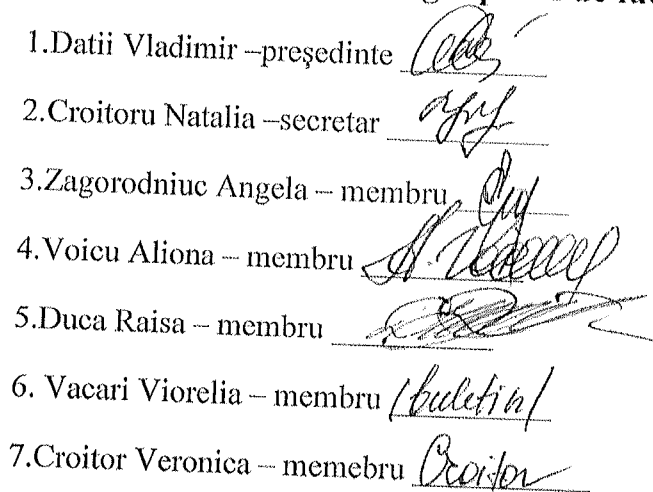 1.Datii Vladimir –președinte
2.Croitoru Natalia –secretar
3.Zagorodniuc Angela – membru
4.Voicu Aliona – membru
5.Duca Raisa – membru
6. Vacari Viorelia – membru /buletin/
7.Croitor Veronica – memebru Croitor